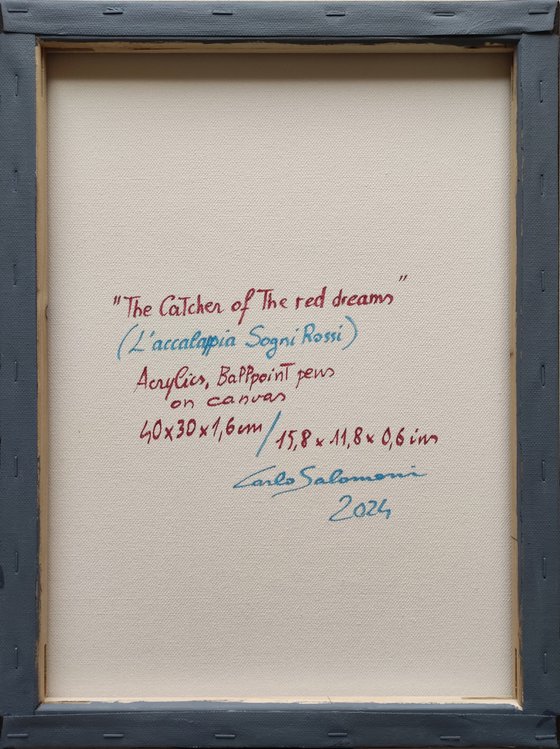 "The Catcher of The red dreams"
(L'accalappia Sogni Rossi)
Acrylics, Ballpoint pens
on canvas
40x30x1,6cm / 15,8 x 11,8 x 0,6 ins
Carlo Salomoni
2024